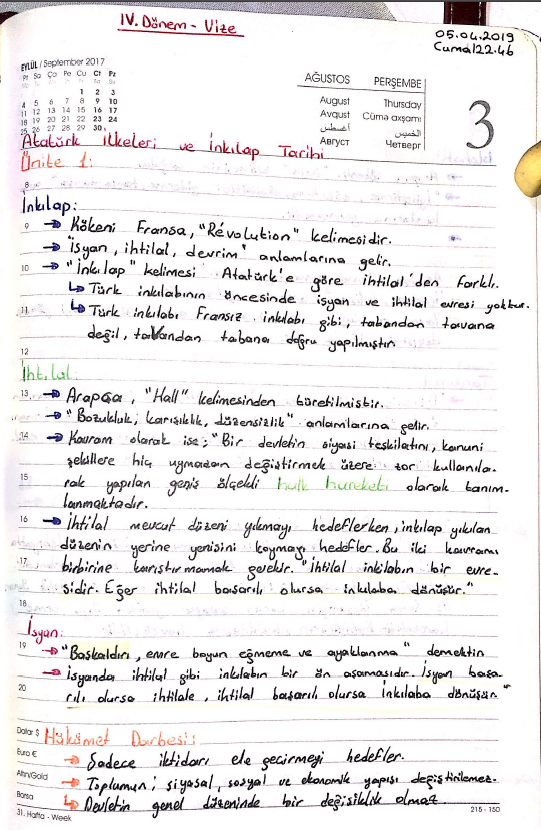 IV. Dönem - Vize
05.04.2019
Cuma/22.46
EYLÜL / September 2017
Pt Sa Ça Pe Cu Ct Pz
1 2 3
4 5 6 7 8 9 10
11 12 13 14 15 16 17
18 19 20 21 22 23 24
25 26 27 28 29 30
AĞUSTOS PERŞEMBE
August Thursday
Avqust Cümə axşamı
أغسطس الخميس
Август Четверг
3
Atatürk ilkeleri ve İnkılap Tarihi
Ünite 1:
8
İnkılap:
9 → Kökeni Fransa, "Révolution" kelimesidir.
→ "İsyan, ihtilal, devrim" anlamlarına gelir.
10 → "İnkılap" kelimesi Atatürk'e göre ihtilal'den farklı.
↳ Türk inkılabının öncesinde isyan ve ihtilal evresi yoktur.
11 ↳ Türk inkılabı Fransız inkılabı gibi, tabandan tavana
değil, tavandan tabana doğru yapılmıştır.
12
İhtilal:
13 → Arapça, "Hall" kelimesinden türetilmiştir.
→ "Bozukluk, karışıklık, düzensizlik" anlamlarına gelir.
14 → Kavram olarak ise; "Bir devletin siyasi teşkilatını, kanuni
şekillere hiç uymadan değiştirmek üzere zor kullanıla-
15 rak yapılan geniş ölçekli halk hareketi olarak tanım-
lanmaktadır.
16 → İhtilal mevcut düzeni yıkmayı hedeflerken, inkılap yıkılan
düzenin yerine yenisini koymayı hedefler. Bu iki kavramı
17 birbirine karıştırmamak gerekir. "İhtilal inkılabın bir evre-
sidir. Eğer ihtilal başarılı olursa inkılaba dönüşür."
18
İsyan:
19 → "Başkaldırı, emre boyun eğmeme ve ayaklanma" demektir
→ İsyanda ihtilal gibi inkılabın bir ön aşamasıdır. İsyan başa-
20 rılı olursa ihtilale, ihtilal başarılı olursa inkılaba dönüşür"
Dolar $ Hükümet Darbesi:
Euro € → Sadece iktidarı ele geçirmeyi hedefler.
Altın/Gold → Toplumun; siyasal, sosyal ve ekonomik yapısı değiştirilemez.
Borsa ↳ Devletin genel düzeninde bir değişiklik olmaz.
31. Hafta - Week 215 - 150